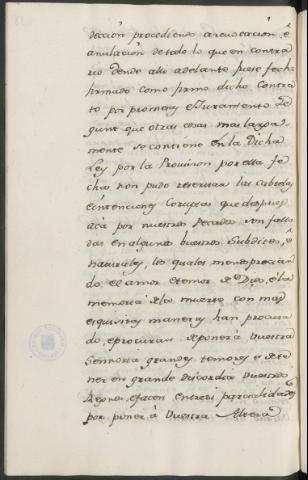 deccion procediendo a revocacion, é
anulacion de todo lo que en contra
rio dende alli adelante fuese fecho
firmado como firmo dicho contra
to por promesas é Juramento se
gunt que otras cosas mas larga
mente se contiene en la Dicha
Ley por la Provision por ella fe
cha non pudo refrenar las cubdicias
é intenciones Corruptas que despues
acá por nuestros Pecados son falla
das en algunos vuestros Subditos, é
naturales, los quales menospreciando
do el amor é temor de Dios, é la
memoria de la muerte con mas
esquisitas maneras han procura
do, e procuran de poner á Vuestra
Señoria grandes temores é de te
ner en grande discordia Vuestros
Regnos, é facen entre si parcialidades
por poner á Vuestra Alteza